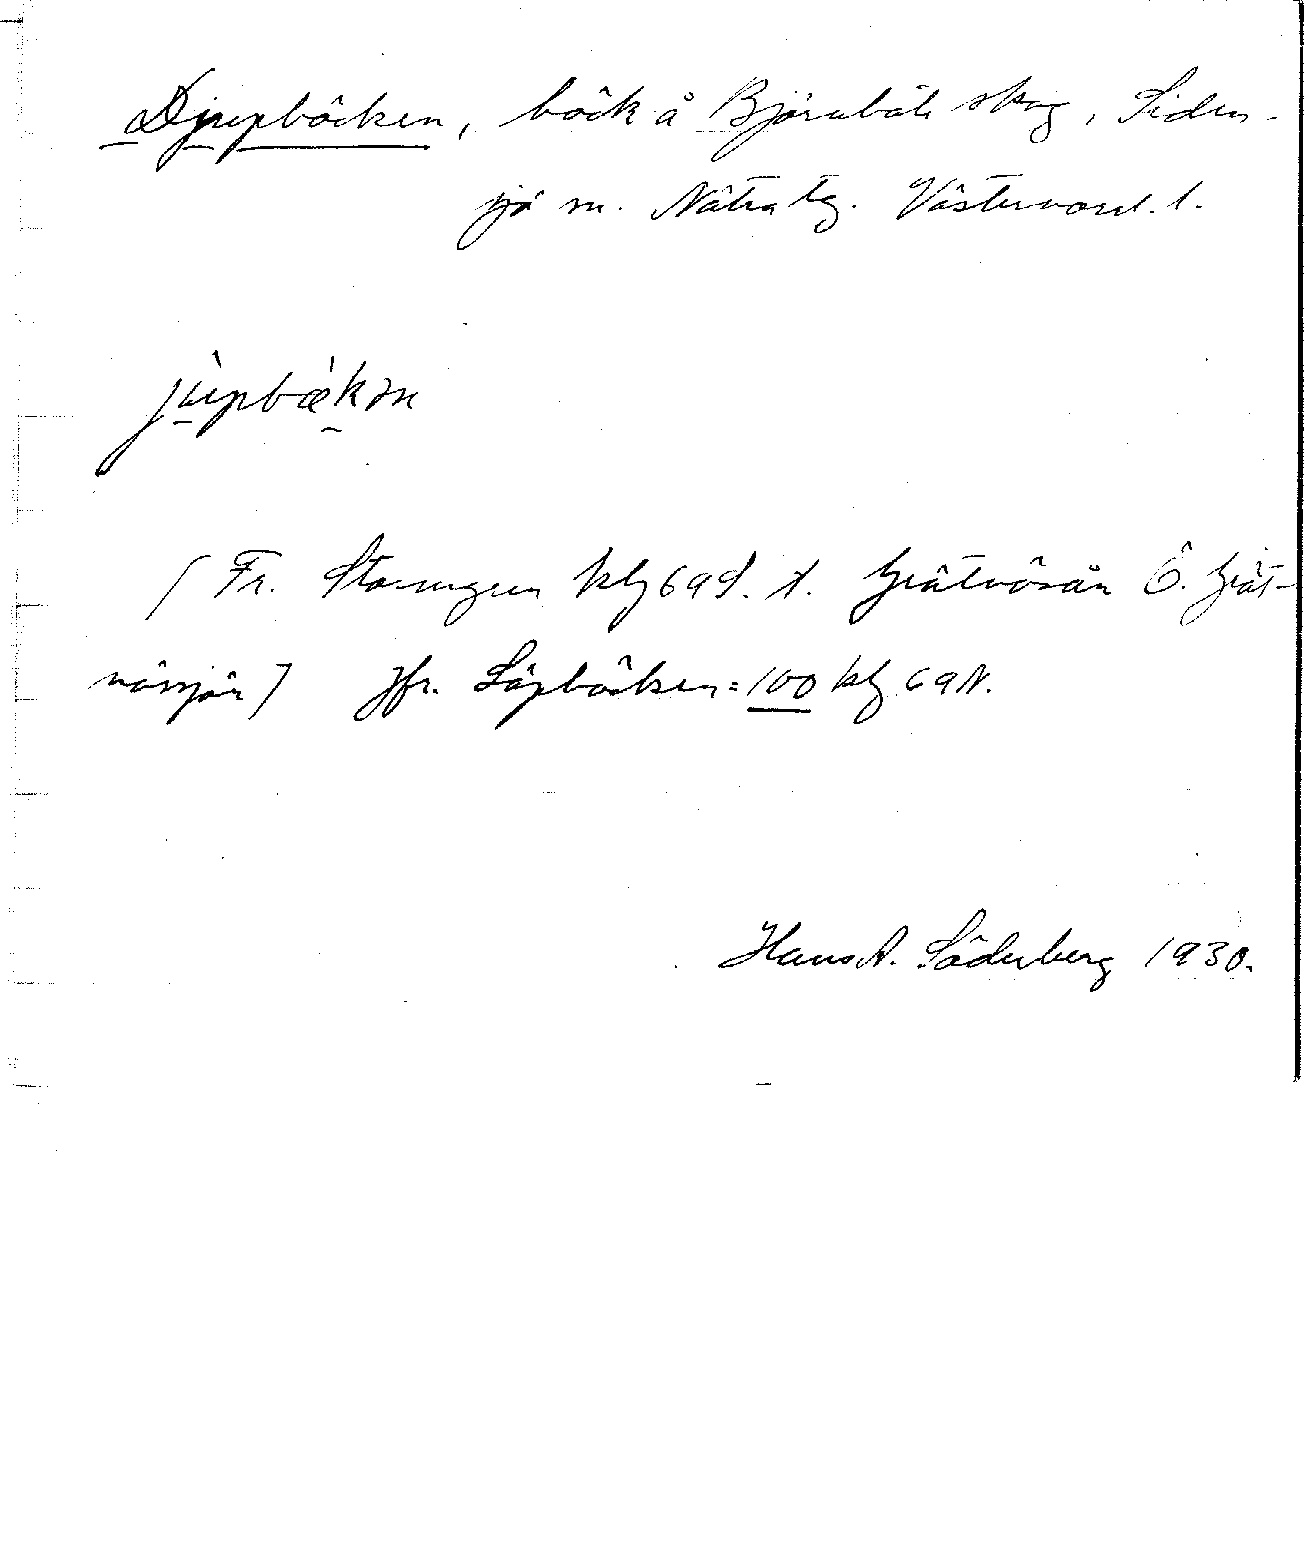 Djupbäcken, bäck å Björnböle skog, Siden-
sjö sn. Nätra tg. Västernorrl. l.
jùpbæ̀kən
[Fr. Stormyren kbl 69S. t. Grätnäsån Ö. Grät-
näsjön] Jfr. Löpbäcken = 100 kbl 69N.
Hans A. Söderberg 1930.